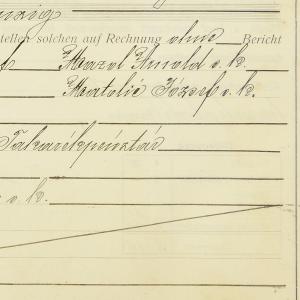 stellen solchen auf Rechnung ohne Bericht
Arnold s. k.
Matelić József s. k.
Takarékpénztár
s. k.